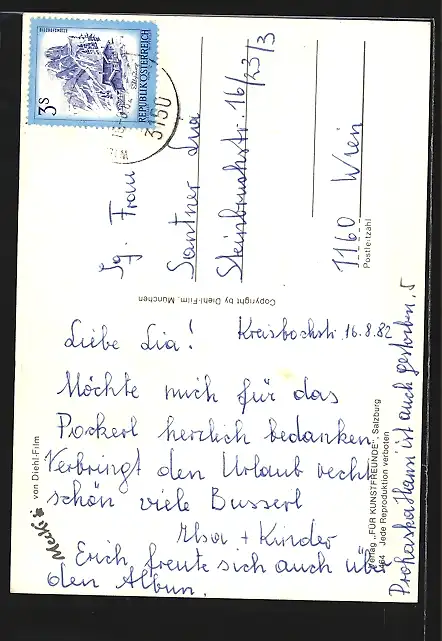 3 S
REPUBLIK ÖSTERREICH
3150
Sg. Frau
Santner Lia
Steinbruchstr. 16/23/3
1160 Wien
Postleitzahl
Copyright by Diehl-Film, München
Liebe Lia!
16.8.82
Möchte mich für das
Packerl herzlich bedanken.
Verbringt den Urlaub recht
schön viele Busserl
Ilsa + Kinder
Erich freute sich auch über
den Album.
Prohaska Hansi ist auch gestorben.
Mecki
von Diehl-Film
Verlag „FÜR KUNSTFREUNDE", Salzburg
464 Jede Reproduktion verboten